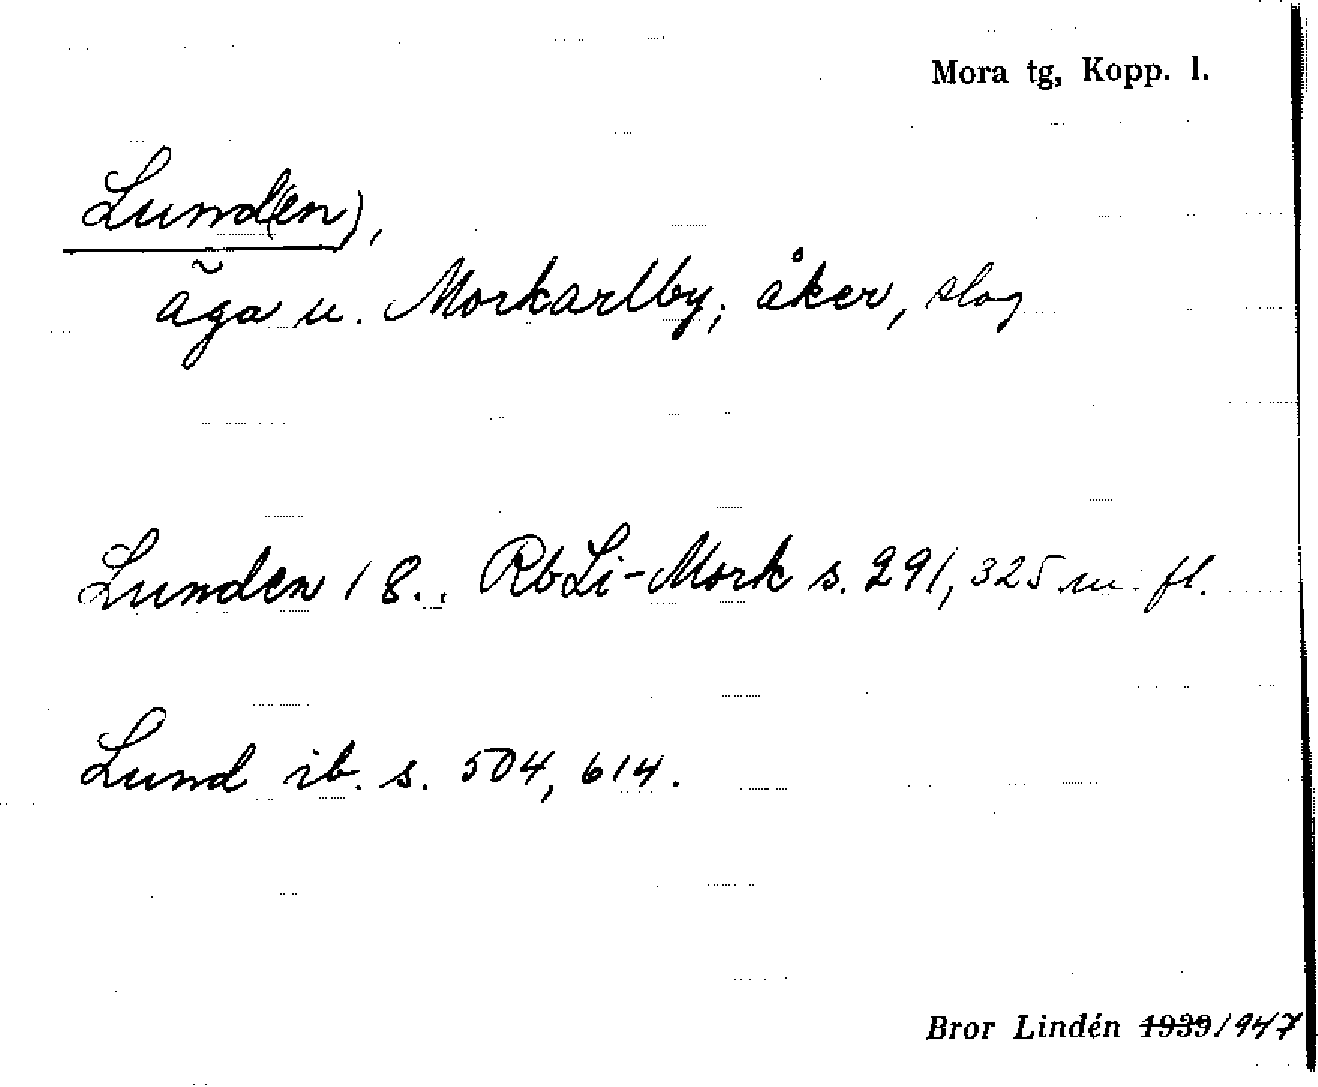 Mora tg, Kopp. l.
Lund(en),
äga u. Morkarlby; åker, slog
Lunden 18.. RbLi-Mork s. 291, 325 m. fl.
Lund ib. s. 504, 614.
Bror Lindén 1939 1947